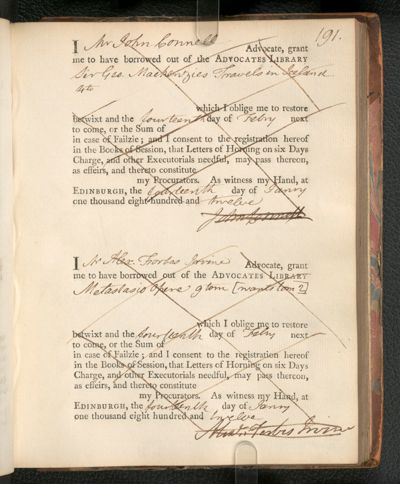 191.
I Mr John Connell Advocate, grant
me to have borrowed out of the ADVOCATES LIBRARY
Sir Geo. Mackenzies Travels in Iceland
4to
which I oblige me to restore
betwixt and the fourteenth day of Febry next
to come, or the Sum of
in case of Failzie; and I consent to the registration hereof
in the Books of Session, that Letters of Horning on six Days
Charge, and other Executorials needful, may pass thereon,
as effeirs, and thereto constitute
my Procurators. As witness my Hand, at
EDINBURGH, the day of Janry
one thousand eight hundred and twelve
John Connell
I Mr Alexr Forbes Irvine Advocate, grant
me to have borrowed out of the ADVOCATES LIBRARY
Metastasio Opere 9 tom [wants tom 2]
which I oblige me to restore
betwixt and the fourteenth day of Febry next
to come, or the Sum of
in case of Failzie; and I consent to the registration hereof
in the Books of Session, that Letters of Horning on six Days
Charge, and other Executorials needful, may pass thereon,
as effeirs, and thereto constitute
my Procurators. As witness my Hand, at
EDINBURGH, the fourteenth day of Janry
one thousand eight hundred and twelve
Alexr Forbes Irvine